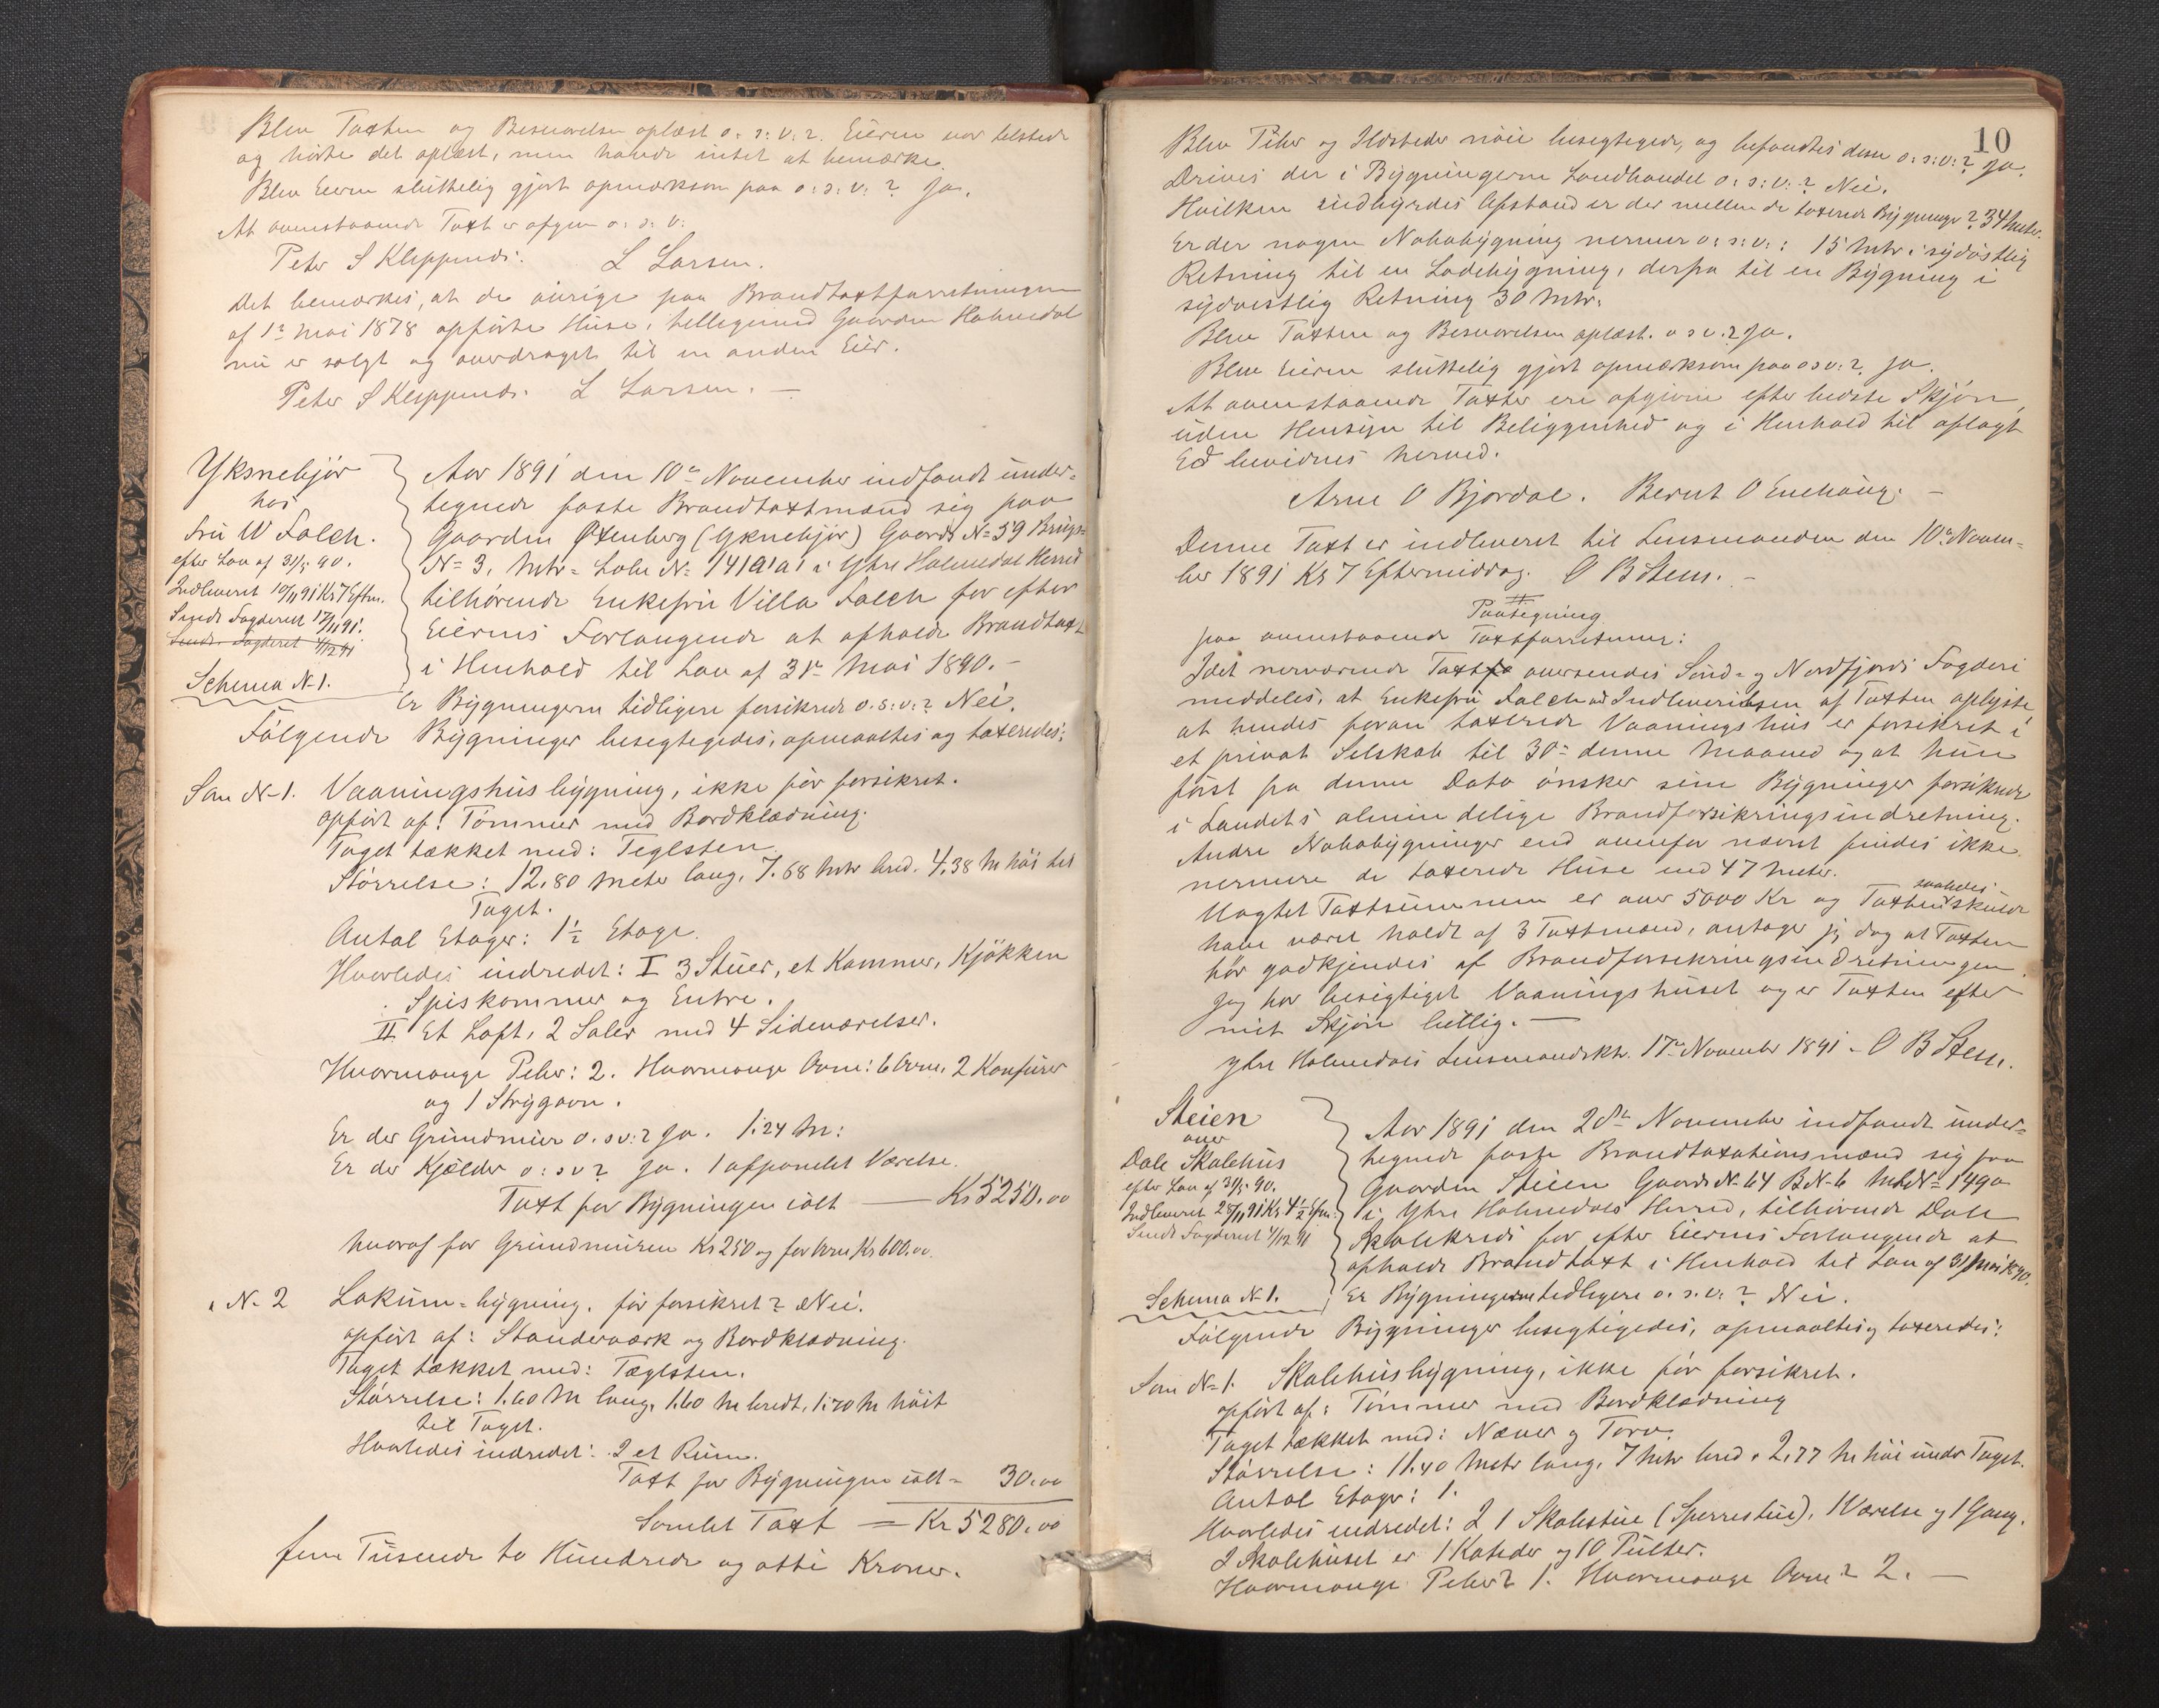 Blev Taxten og Besvarelsen oplæst o: s: v: ?. Eieren var tilstede
og hörte det oplæst, men havde intet at bemærke.
Blev Eieren sluttelig gjort opmærksom paa o: s: v: ? Ja.
At ovenstaaende Taxt er afgivn o: s: v:
Peter S Kleppenes. L Larsen.
Det bemærkes, at de övrige paa Brandtaxtforretningen
af 1ste Mai 1878 opförte Huse, tillegemed Gaarden Holmedal
nu er solgt og overdraget til en anden Eier.
Peter S Kleppenes. L Larsen. —
Yksnebjör
hos
Fru W Falch.
efter Lov af 31/5 90.
Indleveret 10/11 91 Kl 7 Eftm.
Sendt Fogderiet 17/11 91.
Sendt Fogderiet 4/12 91
Schema N= 1.
Aar 1891 den 10de November indfandt under=
tegnede faste Brandtaxtmænd sig paa
Gaarden Øxenberg (Yxnebjör) Gaards N= 59 Brugs=
N= 3, Mtr= Lobe N= 141a1a1 i Ytre Holmedal Herred
tilhörende Enkefru Villa Falch for efter
Eierens Forlangende at afholde Brandtaxt
i Henhold til Lov af 31te Mai 1890. —
Er Bygningerne tidligere forsikrede o. s: v: ? Nei.
Fölgende Bygninger besegtegedes, opmaaltes og taxeredes:
Som N= 1. Vaaningshusbygning, ikke för forsikret.
opfört af: Tömmer med Bordklædning.
Taget tækket med: Teglsten.
Störrelse: 12,80 Meter lang, 7.68 Mtr bred. 4,38 M höi til
Taget.
Antal Etager: 1½ Etage.
Hvorledes indredet: I 3 Stuer, et Kammer, Kjökken
Spiskammer og Entre.
II Et Loft, 2 Saler med 4 Sideværelser.
Hvormange Peber: 2. Hvormange Ovne: 6 Ovne, 2 Komfurer
og 1 Strygovn.
Er der Grundmur o. s v: ? Ja. 1.24 M:
Er der Kjælder o: s v ? Ja. 1 afpanelet Værelse.
Taxt for Bygningen ialt — Kr 5250.00
hvoraf for Grundmuren Kr 250 og for Ovne Kr 600.00.
" N= 2 Lokum=bygning. för forsikret? Nei.
opfört af: Standerværk og Bordklædning.
Taget tækket med: Tæglsten.
Störrelse: 1.60 M lang, 1.60 M bredt, 1.70 M höit
til Taget.
Hvorledes indredet: I et Rum.
Taxt for Bygningen ialt = 30.00
Samlet Taxt = Kr 5280.00
fem Tusende to Hundrede og otti Kroner.
10
Blev Peber og Ildsteder nöie besegtegede, og befandtes disse o: s: v: ? Ja.
Drives der i Bygningerne Landhandel o: s: v: ? Nei.
Hvilken indbyrdes Afstand er der mellem de taxerede Bygninger? 34 Meter.
Er der nogen Nabobygning nermer o: s: v: : 15 Mtr i sydöstlig
Retning til en Ladebygning, derfra til en Bygning i
sydvestlig Retning 30 Mtr.
Blev Taxten og Besvarelsen oplæst. o s v. ? Ja.
Blev Eieren sluttelig gjort opmærksom paa o s v: ? Ja.
At ovenstaaende Taxter ere afgivne efter bedste Skjön,
uden Hensyn til Beliggenhed og i Henhold til aflagt
Ed bevidnes herved.
Arne O Bjordal. Bernt O Enehaug. —
Denne Taxt er indleveret til Lensmanden den 10de Novem=
ber 1891 Kl 7 Eftermiddag. O B Steen. —
Paategning
paa ovenstaaende Taxtforretninger:
Idet nerværende Taxt oversendes Sönd= og Nordfjords Fogderi
meddeles, at Enkefru Falch ved Indleverelsen af Taxten oplyste
at hendes foran taxerede Vaaningshus er forsikret i
et privat Selskab til 30te denne Maaned og at hun
först fra denne Dato önsker sine Bygninger forsikrede
i Landets almindelige Brandforsikringsindretning.
Andre Nabobygninger end ovenfor nævnt findes ikke
nermere de taxerede Huse end 47 Meter.
Uagtet Taxtsummen er over 5000 Kr og Taxten saaledes skulde
have været holdt af 3 Taxtmænd, antager jeg dog at Taxten
bör godkjendes af Brandforsikringsindretningen.
Jeg har besigtiget Vaaningshuset og er Taxten efter
mit Skjön billig. —
Ytre Holmedals Lensmandsktr. 17de November 1891 - O B Steen.
Steien
over
Dale Skolehus
efter Lov af 31/5 90.
Indleveret 28/11 91 Kl 4½ Efm.
Sendt Fogderiet 4/12 91
Schema N= 1.
Aar 1891 den 28de November indfandt under=
tegnede faste Brandtaxationsmænd sig paa
Gaarden Steien Gaards N= 64 B.N= 6 MtrL N= 149a
i Ytre Holmedals Herred, tilhörende Dale
Skolekreds for efter Eierens Forlangende at
afholde Brandtaxt i Henhold til Lov af 31 Mai 1890.
Er Bygningerne tidligere o. s. v: ? Nei.
Fölgende Bygninger besegtigedes, opmaaltes og taxeredes:
Som N= 1. Skolehusbygning, ikke för forsikret.
opfört af: Tömmer med Bordklædning
Taget tækket med: Næver og Torv.
Störrelse: 11.40 Metr lang, 7 Mtr bred. 2,77 M höi under Taget.
Antal Etager: 1.
Hvorledes indredet: I 1 Skolestue (Sperrestue), 1 Værelse og 1 Gang.
I Skolehuset er 1 Kateder og 10 Pulter.
Hvormange Peber? 1. Hvormange Ovne? 2. —